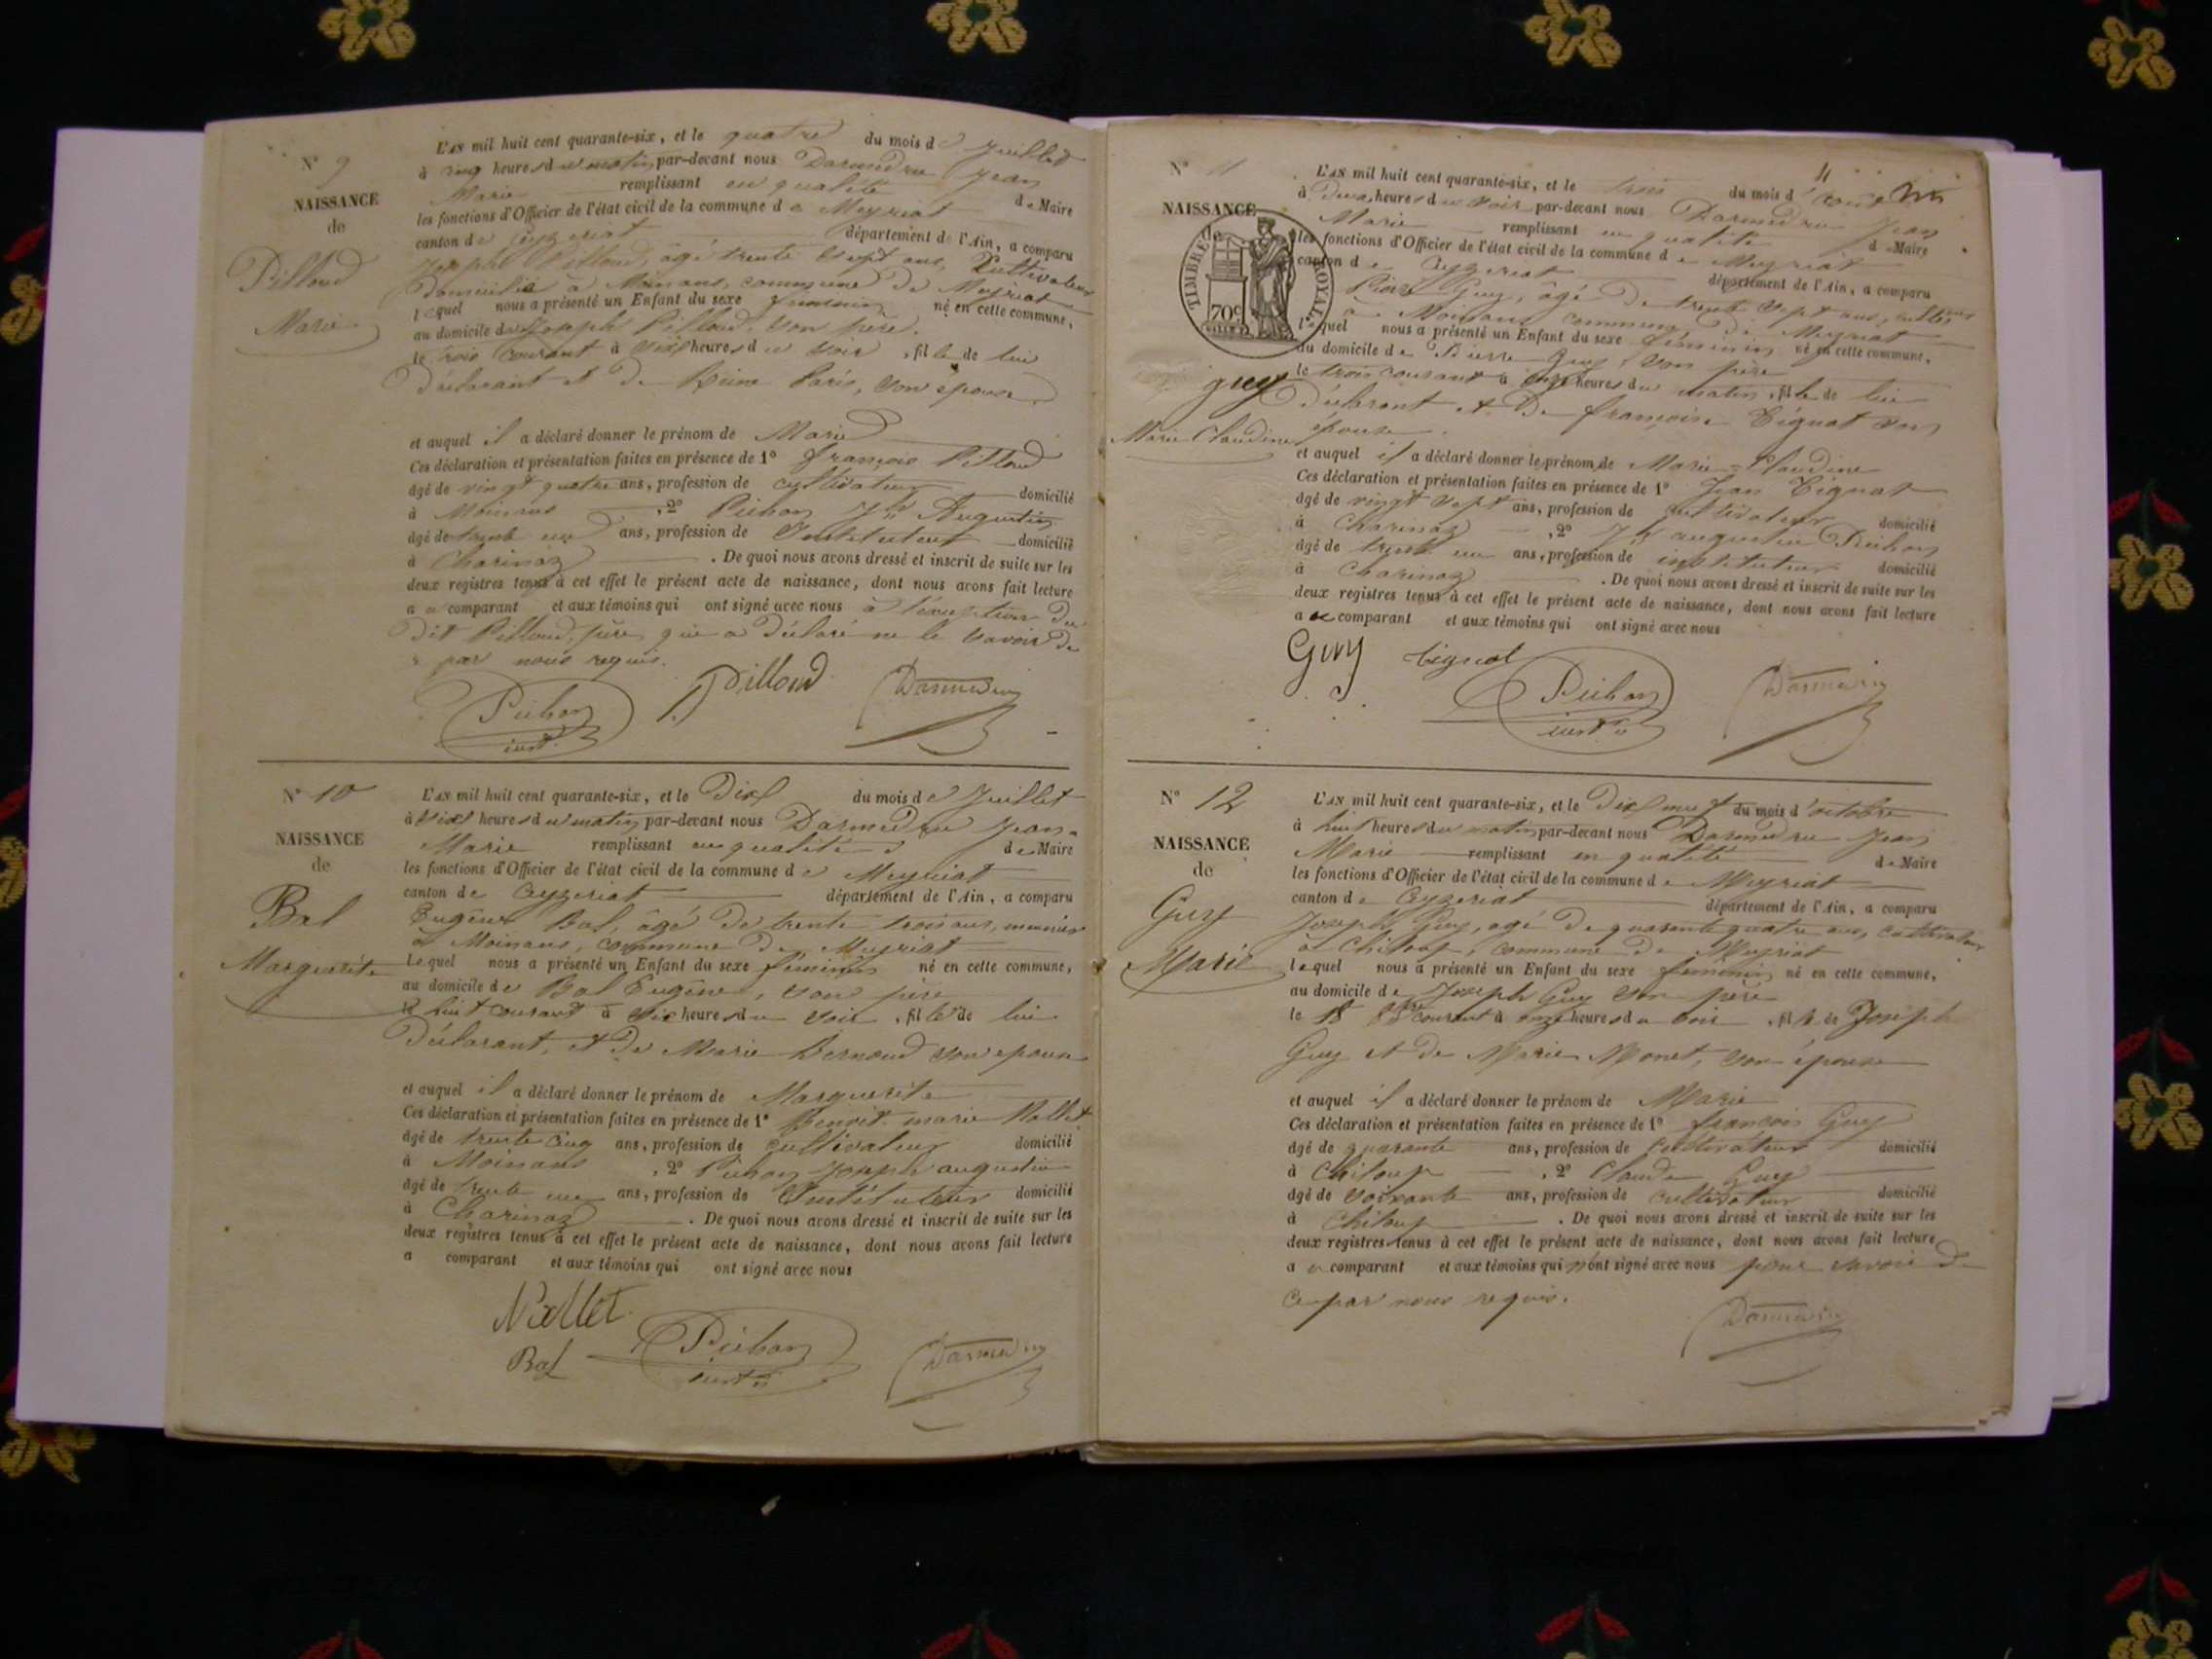 N° 9
NAISSANCE
de
Pilloud
Marie
L'AN mil huit cent quarante-six, et le quatre du mois de Juillet
à cinq heures du matin, par-devant nous Darmedru Jean
Marie remplissant en qualité de Maire
les fonctions d'Officier de l'état civil de la commune de Meyriat
canton de Ceyzeriat département de l'Ain, a comparu
Joseph Pilloud, âgé trente sept ans, Cultivateur
Domicilié à Moinans, commune de Meyriat
lequel nous a présenté un Enfant du sexe feminin né en cette commune,
au domicile de Joseph Pilloud, son père.
le trois courant à six heures du soir, fille de lui
Déclarant et de Reine Paris, son épouse
et auquel il a déclaré donner le prénom de Marie
Ces déclaration et présentation faites en présence de 1° françois Pilloud
âgé de vingt quatre ans, profession de cultivateur domicilié
à Moinans, 2° Pichon Jh Augustin
âgé de trente un ans, profession de Instituteur domicilié
à Charinaz. De quoi nous avons dressé et inscrit de suite sur les
deux registres tenus à cet effet le présent acte de naissance, dont nous avons fait lecture
au comparant et aux témoins qui ont signé avec nous à l'exception du
dit Pilloud, père, qui a déclaré ne le savoir de
par nous requis.
Pichon inst. Pilloud Darmedru
N° 10
NAISSANCE
de
Bal
Marguerite
L'AN mil huit cent quarante-six, et le Dix du mois de Juillet
à six heures du matin, par-devant nous Darmedru Jean-
Marie remplissant en qualité de Maire
les fonctions d'Officier de l'état civil de la commune de Meyriat
canton de Ceyzeriat département de l'Ain, a comparu
Eugène Bal, âgé de trente trois ans, meunier
à Moinans, commune de Meyriat
lequel nous a présenté un Enfant du sexe féminin né en cette commune,
au domicile de Bal Eugène, son père
le huit courant à six heures du soir, fille de lui
Déclarant, et de Marie Bernoud son épouse
et auquel il a déclaré donner le prénom de Marguerite
Ces déclaration et présentation faites en présence de 1° Benoit-marie Nallet
âgé de trente cinq ans, profession de cultivateur domicilié
à Moinans, 2° Pichon Joseph augustin
âgé de trente un ans, profession de Instituteur domicilié
à Charinaz. De quoi nous avons dressé et inscrit de suite sur les
deux registres tenus à cet effet le présent acte de naissance, dont nous avons fait lecture
a comparant et aux témoins qui ont signé avec nous
Nallet
Bal Pichon inst. Darmedru
4
N° 11
NAISSANCE
de
TIMBRE ROYAL
70c
guy
Marie Claudine
L'AN mil huit cent quarante-six, et le trois du mois d'août
à Deux heures du soir par-devant nous Darmedru Jean
Marie remplissant en qualité de Maire
les fonctions d'Officier de l'état civil de la commune de Meyriat
canton de Ceyzeriat département de l'Ain, a comparu
Pierre Guy, âgé de trente sept ans, cultivateur
à Moinans commune de Meyriat
lequel nous a présenté un Enfant du sexe féminin né en cette commune,
au domicile de Pierre Guy, son père
le trois courant à onze heures du matin, fille de lui
Déclarant et de françoise Tignat son
épouse.
et auquel il a déclaré donner le prénom de Marie-Claudine
Ces déclaration et présentation faites en présence de 1° Jean Tignat
âgé de vingt sept ans, profession de cultivateur domicilié
à Charinaz, 2° Jh augustin Pichon
âgé de trente un ans, profession de instituteur domicilié
à Charinaz. De quoi nous avons dressé et inscrit de suite sur les
deux registres tenus à cet effet le présent acte de naissance, dont nous avons fait lecture
au comparant et aux témoins qui ont signé avec nous
Guy tignat Pichon inst. Darmedru
N° 12
NAISSANCE
de
Guy
Marie
L'AN mil huit cent quarante-six, et le Dix neuf du mois d'octobre
à huit heures du matin par-devant nous Darmedru Jean
Marie remplissant en qualité de Maire
les fonctions d'Officier de l'état civil de la commune de Meyriat
canton de Ceyzeriat département de l'Ain, a comparu
Joseph Guy, agé de quarante quatre ans, cultivateur
à Chiloup, commune de Meyriat
lequel nous a présenté un Enfant du sexe feminin né en cette commune,
au domicile de Joseph Guy son père
le 18 courant à onze heures du soir, fille de Joseph
Guy et de Marie Monet, son épouse
et auquel il a déclaré donner le prénom de Marie
Ces déclaration et présentation faites en présence de 1° françois Guy
âgé de quarante ans, profession de Cultivateur domicilié
à Chiloup, 2° Claude Guy
âgé de soixante ans, profession de cultivateur domicilié
à Chiloup. De quoi nous avons dressé et inscrit de suite sur les
deux registres tenus à cet effet le présent acte de naissance, dont nous avons fait lecture
au comparant et aux témoins qui n'ont signé avec nous pour savoir de
ce par nous requis.
Darmedru